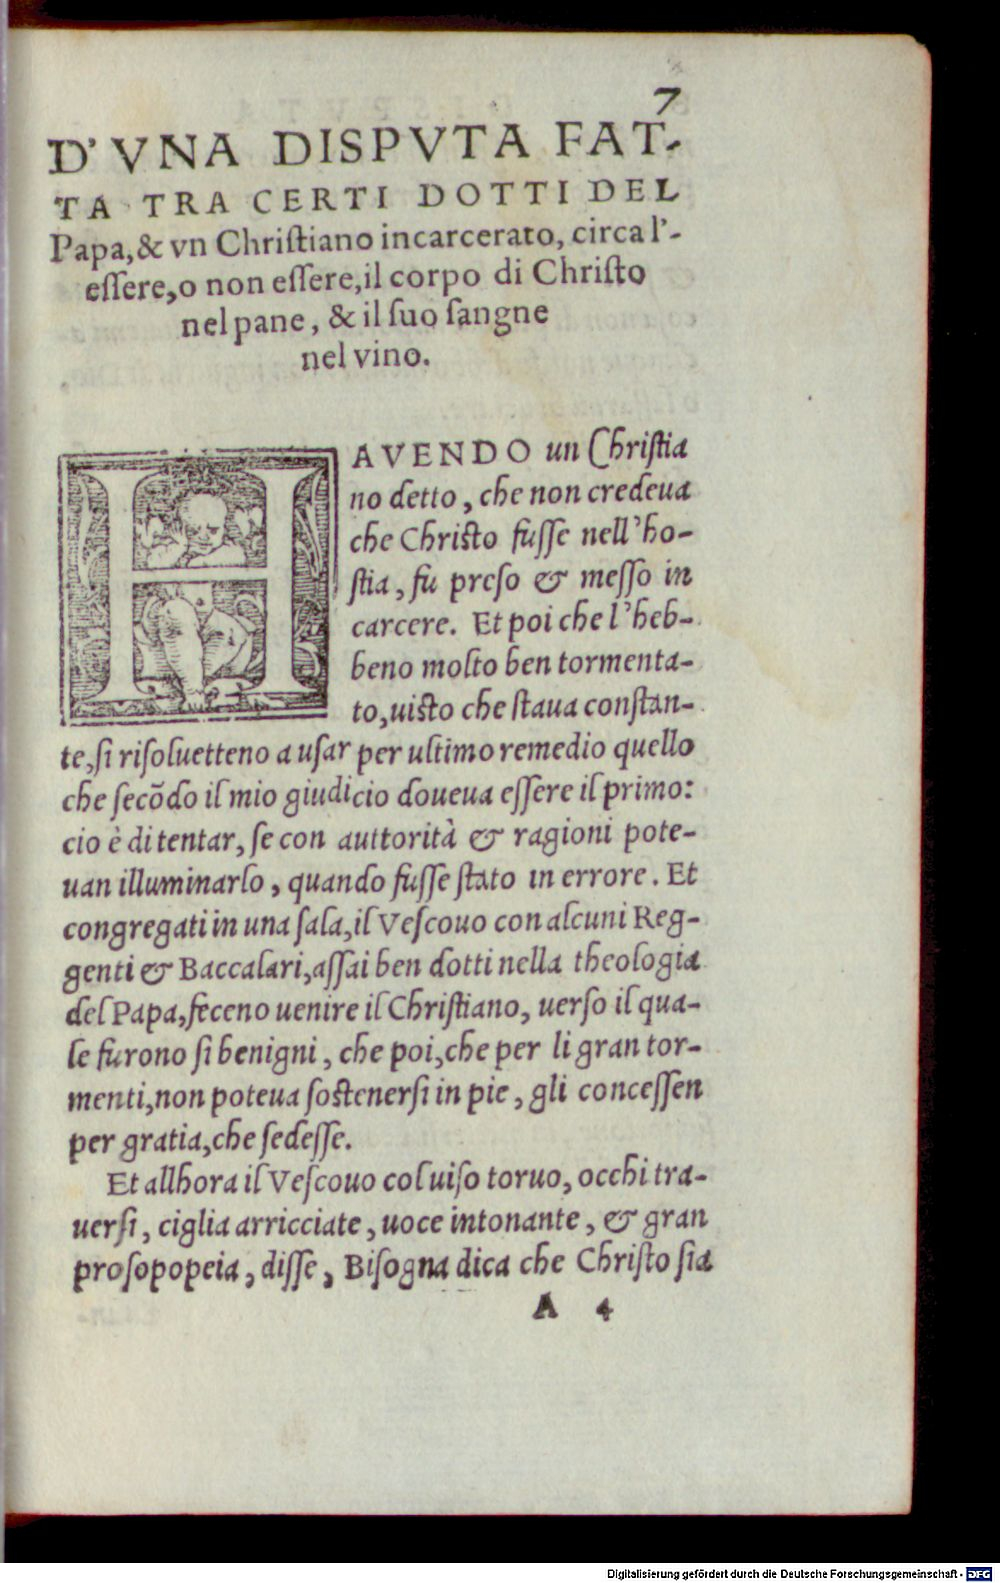 7
D'VNA DISPVTA FAT-
TA TRA CERTI DOTTI DEL
Papa, & vn Chriſtiano incarcerato, circa l'-
eſſere, o non eſſere, il corpo di Chriſto
nel pane, & il ſuo ſangne
nel vino.
HAVENDO un Chriſtia
no detto, che non credeua
che Chriſto fuſſe nell'ho-
ſtia, fu preſo & meſſo in
carcere. Et poi che l'heb-
beno molto ben tormenta-
to, uiſto che ſtaua conſtan-
te, ſi riſoluetteno a uſar per ultimo remedio quello
che ſecōdo il mio giudicio doueua eſſere il primo:
cio è di tentar, ſe con auttorità & ragioni pote-
uan illuminarlo, quando fuſſe ſtato in errore. Et
congregati in una ſala, il Veſcouo con alcuni Reg-
genti & Baccalari, aſſai ben dotti nella theologia
del Papa, feceno uenire il Chriſtiano, uerſo il qua-
le furono ſi benigni, che poi, che per li gran tor-
menti, non poteua ſoſtenerſi in pie, gli conceſſen
per gratia, che ſedeſſe.
Et allhora il Veſcouo col uiſo toruo, occhi tra-
uerſi, ciglia arricciate, uoce intonante, & gran
proſopopeia, diſſe, Biſogna dica che Chriſto ſia
A 4
Digitalisierung gefördert durch die Deutsche Forschungsgemeinschaft - DFG